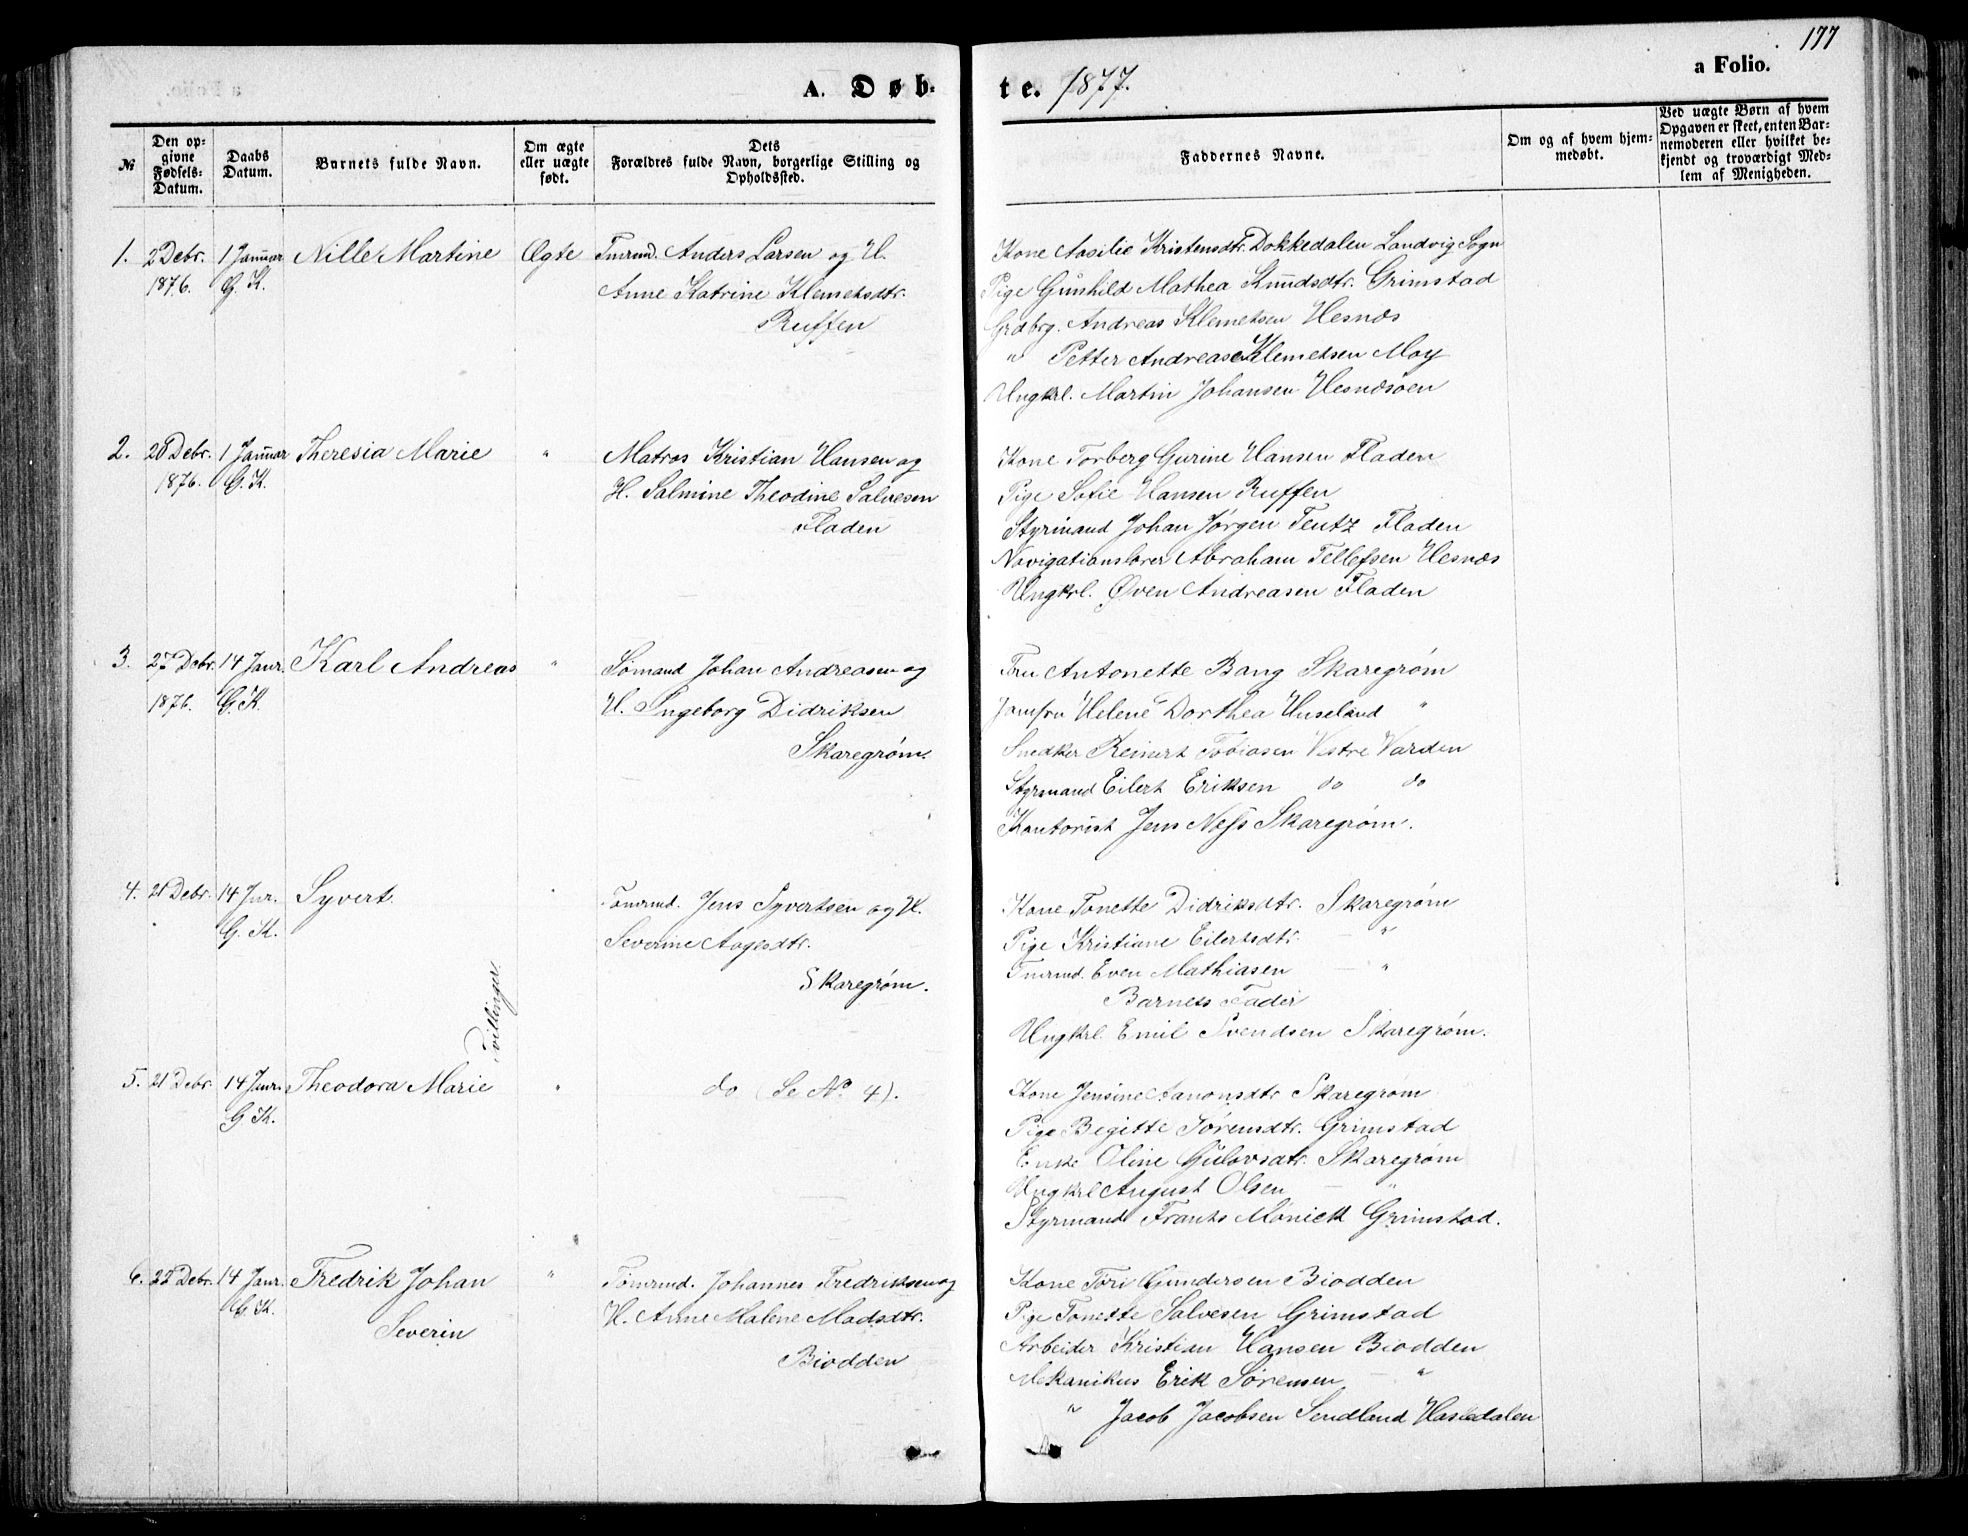 177
A. Døb-
te. 1877.
a Folio.
№
Den op-
givne
Fødsels-
Datum.
Daabs
Datum.
Barnets fulde Navn.
Om ægte
eller uægte
født.
Dets
Forældres fulde Navn, borgerlige Stilling og
Opholdssted.
Faddernes Navne.
Om og af hvem hjem-
medøbt.
Ved uægte Børn af hvem
Opgaven er skeet, enten Bar-
nemoderen eller hvilket be-
kjendt og troværdigt Med-
lem af Menigheden.
1. 2 Debr. 1 Januar Nille Martine Ægte Tmrmd. Anders Larsen og H.
1876. G. K. Anne Katrine Klemetsdtr.
Ruffen
Kone Aasilie Kristensdtr. Dokkedalen Landvig Sogn
Pige Gunhild Mathea Knudsdtr. Grimstad
Grdbrg. Andreas Klemetsen Hesnæs
" Petter Andreas Klemetsen Moy
Ungkrl. Martin Johansen Hesnæsøen
2. 28 Debr. 1 Januar Theresia Marie " Matros Kristian Hansen og
1876. G. K. H. Salmine Theodine Salvesen
Fladen
Kone Torberg Gurine Hansen Fladen
Pige Sofie Hansen Ruffen
Styrmand Johan Jørgen Tentz Fladen
Navigationslærer Abraham Tellefsen Hesnæs
Ungkrl. Øven Andreasen Fladen
3. 27 Debr. 14 Janr. Karl Andreas " Sømand Johan Andreasen og
1876. G. K. H. Ingeborg Didriksen
Skaregrøm.
Fru Antonette Bang Skaregrøm
Jomfru Helene Dorthea Huseland "
Snedker Reinert Tobiasen Vestre Varden
Styrmand Eilert Eriksen do do
Kontorist Jens Ness Skaregrøm.
4. 21 Debr. 14 Jnr. Syvert. Tømrmd. Jens Syvertsen og H.
G. K. Severine Aagesdtr.
Skaregrøm.
Tvillinger.
Kone Tonette Didriksdtr. Skaregrøm
Pige Kristiane Eilertsdtr. — "
Tmrmd. Even Mathiasen — "
Barnets Fader
Ungkrl. Emil Svendsen Skaregrøm.
5. 21 Debr. 14 Janr. Theodora Marie " do (Se № 4).
G. K.
Kone Jensine Aanonsdtr Skaregrøm
Pige Begitte Sørensdtr. Grimstad
Enke Oline Gulovsdtr. Skaregrøm
Ungkrl August Olsen — "
Styrmand Frants Monick Grimstad.
6. 22 Debr. 14 Janr. Fredrik Johan " Tømrmd. Johannes Fredriksen og
G. K. Severin H. Anne Malene Madsdtr.
Biodden
Kone Tori Gundersen Biodden
Pige Tonette Salvesen Grimstad
Arbeider Kristian Hansen Biodden
Mekanikus Erik Sørensen — "
" Jacob Jacobsen Sendland Hasledalen